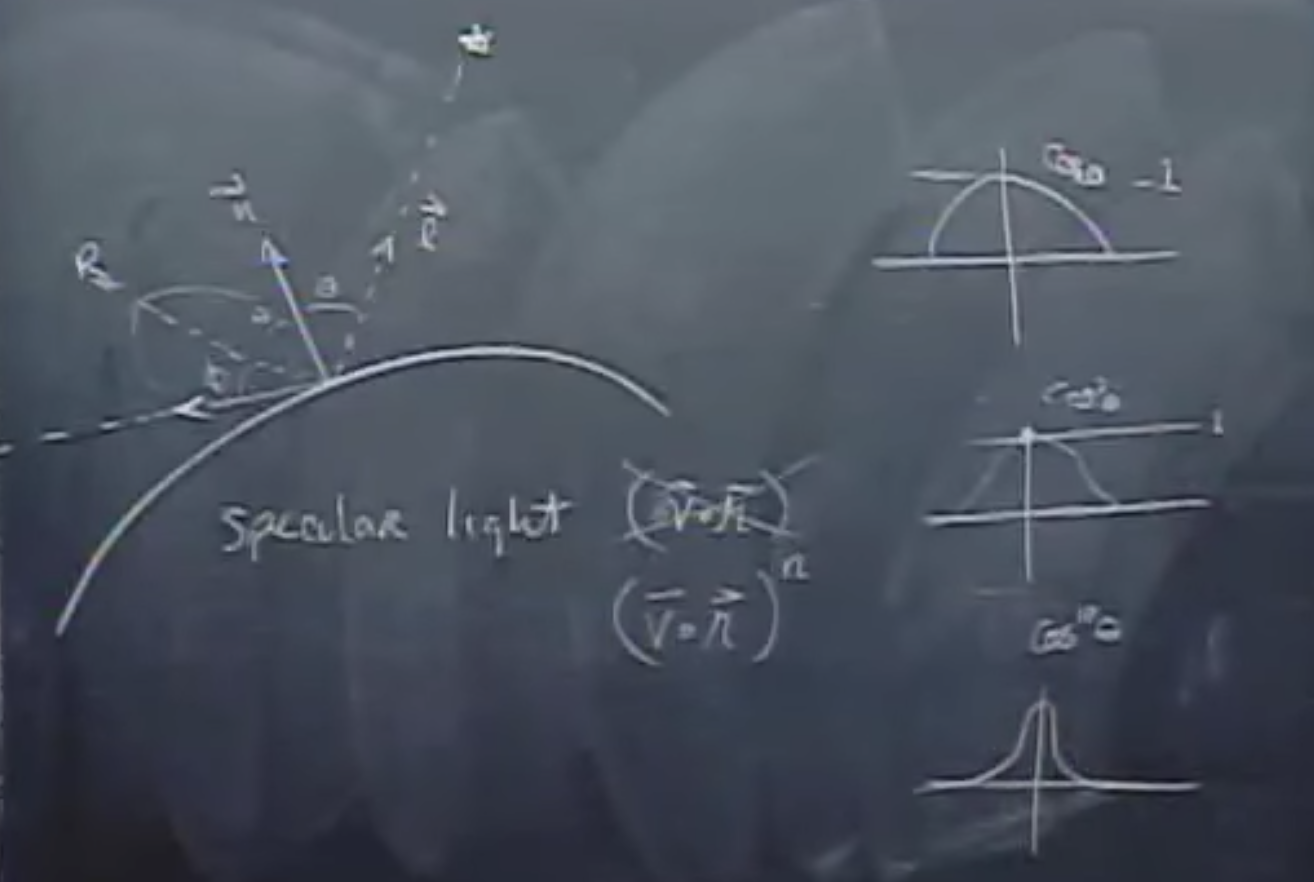 n⃗
l⃗
R
θ
specular light (v⃗·r⃗)
(v⃗·r⃗)ⁿ
cos θ 1
cos²θ 1
cos¹⁰θ